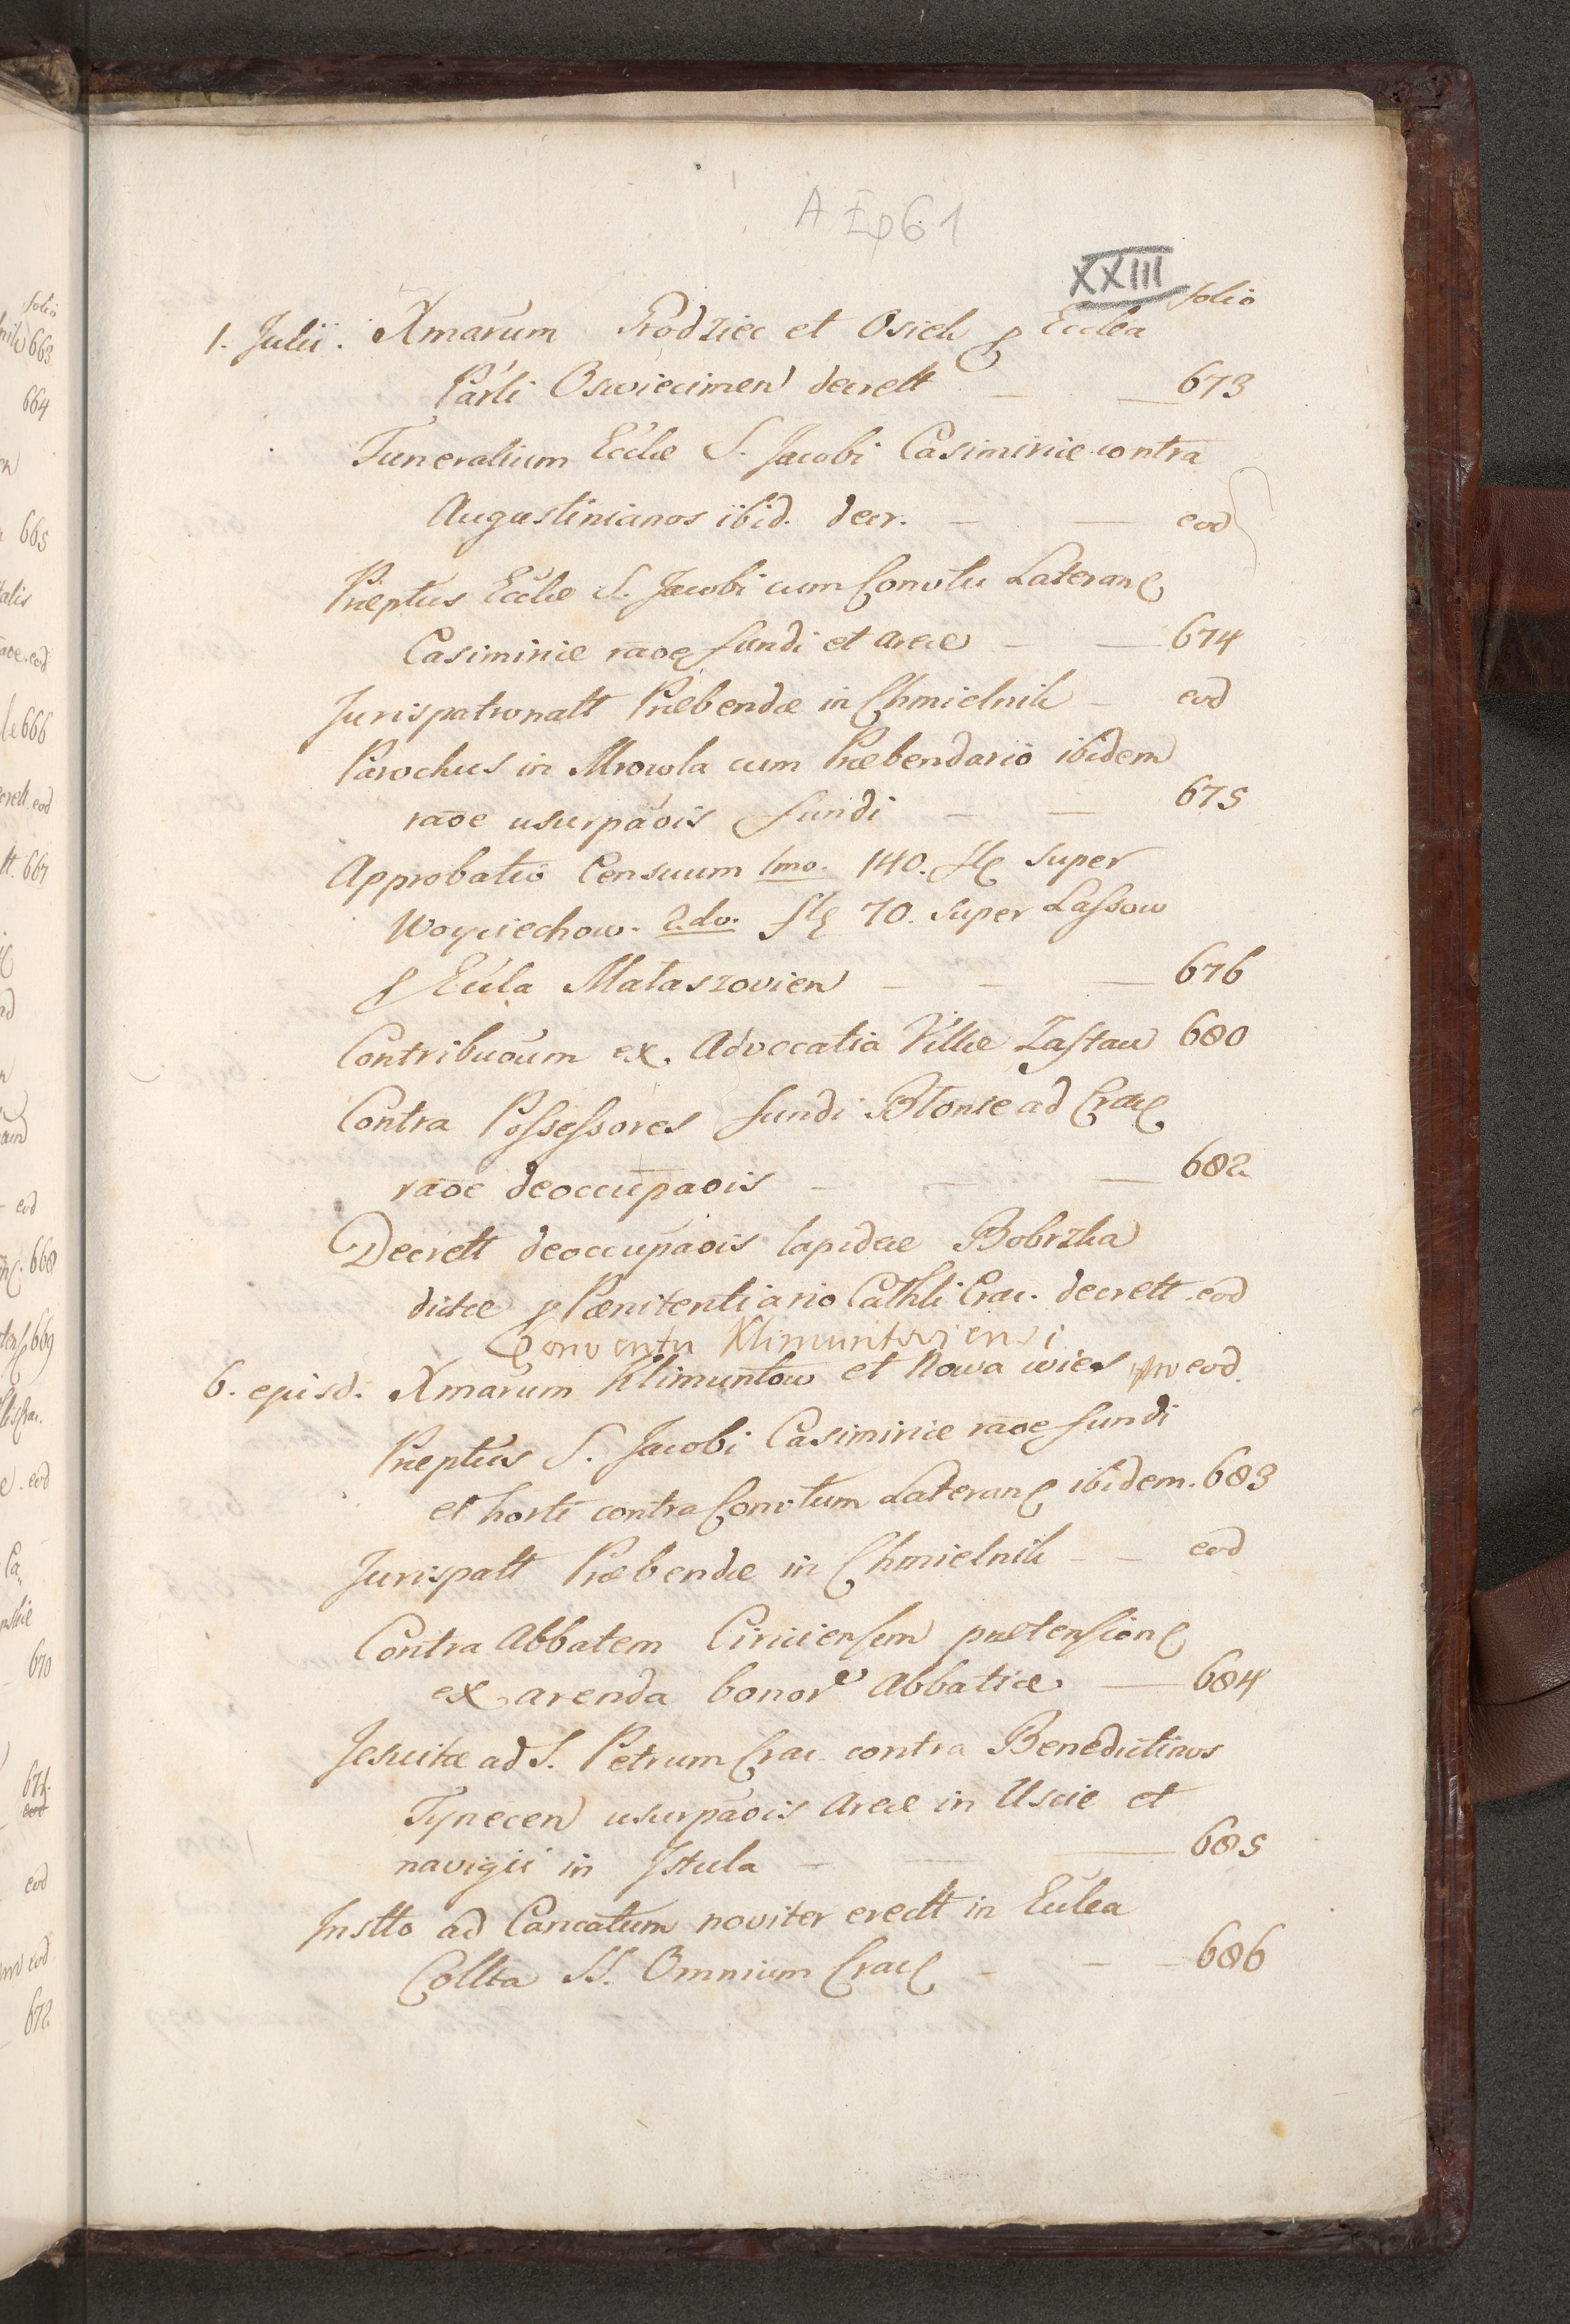 A Ep 61
XXIII
folio
1. Julii. Xmarum Grodziec et Osiek p Eccla
Parli Oswiecimen decrett — — 673
Funeralium Ecclæ S. Jacobi Casimiriæ contra
Augustinianos ibid. decr. — — eod
Præptus Ecclæ S. Jacobi cum Convtu Lateran
Casimiriæ raoe fundi et areæ — — 674
Jurispatronatt Præbendæ in Chmielnik — eod
Parochus in Mrowla cum Præbendario ibidem
raoe usurpaois fundi — — 675
Approbatio Censuum 1mo. 140. fl super
Woyciechow. 2do. fl 70. super Lassow
p Eccla Mataszovien — — — 676
Contribuoum ex Advocatia Villæ Zastaw 680
Contra Possessores fundi Błonie ad Crac
raoe deoccupaois — — — 682
Decrett deoccupaois lapideæ Bobrzka
dictæ p Pœnitentiario Cathli Crac. decrett. eod
Conventu Klimuntoviensi
6. ejusd. Xmarum Klimuntow et Nowa wies pro eod.
Præptus S. Jacobi Casimiriæ raoe fundi
et horti contra Convtum Lateran ibidem. 683
Jurispatt Præbendæ in Chmielnik — — eod
Contra Abbatem Ciriciensem prætension
ex arenda bonor Abbatiæ — 684
Jesuitæ ad S. Petrum Crac. contra Benedictinos
Tynecen usurpaois areæ in Uscie et
navigii in Istula — — — 685
Instto ad Cancatum noviter erectt in Eccla
Collta SS. Omnium Crac — — — 686
folio
663
664
665
eod
666
eod
667
668
669
eod
670
671.
eod
eod
672